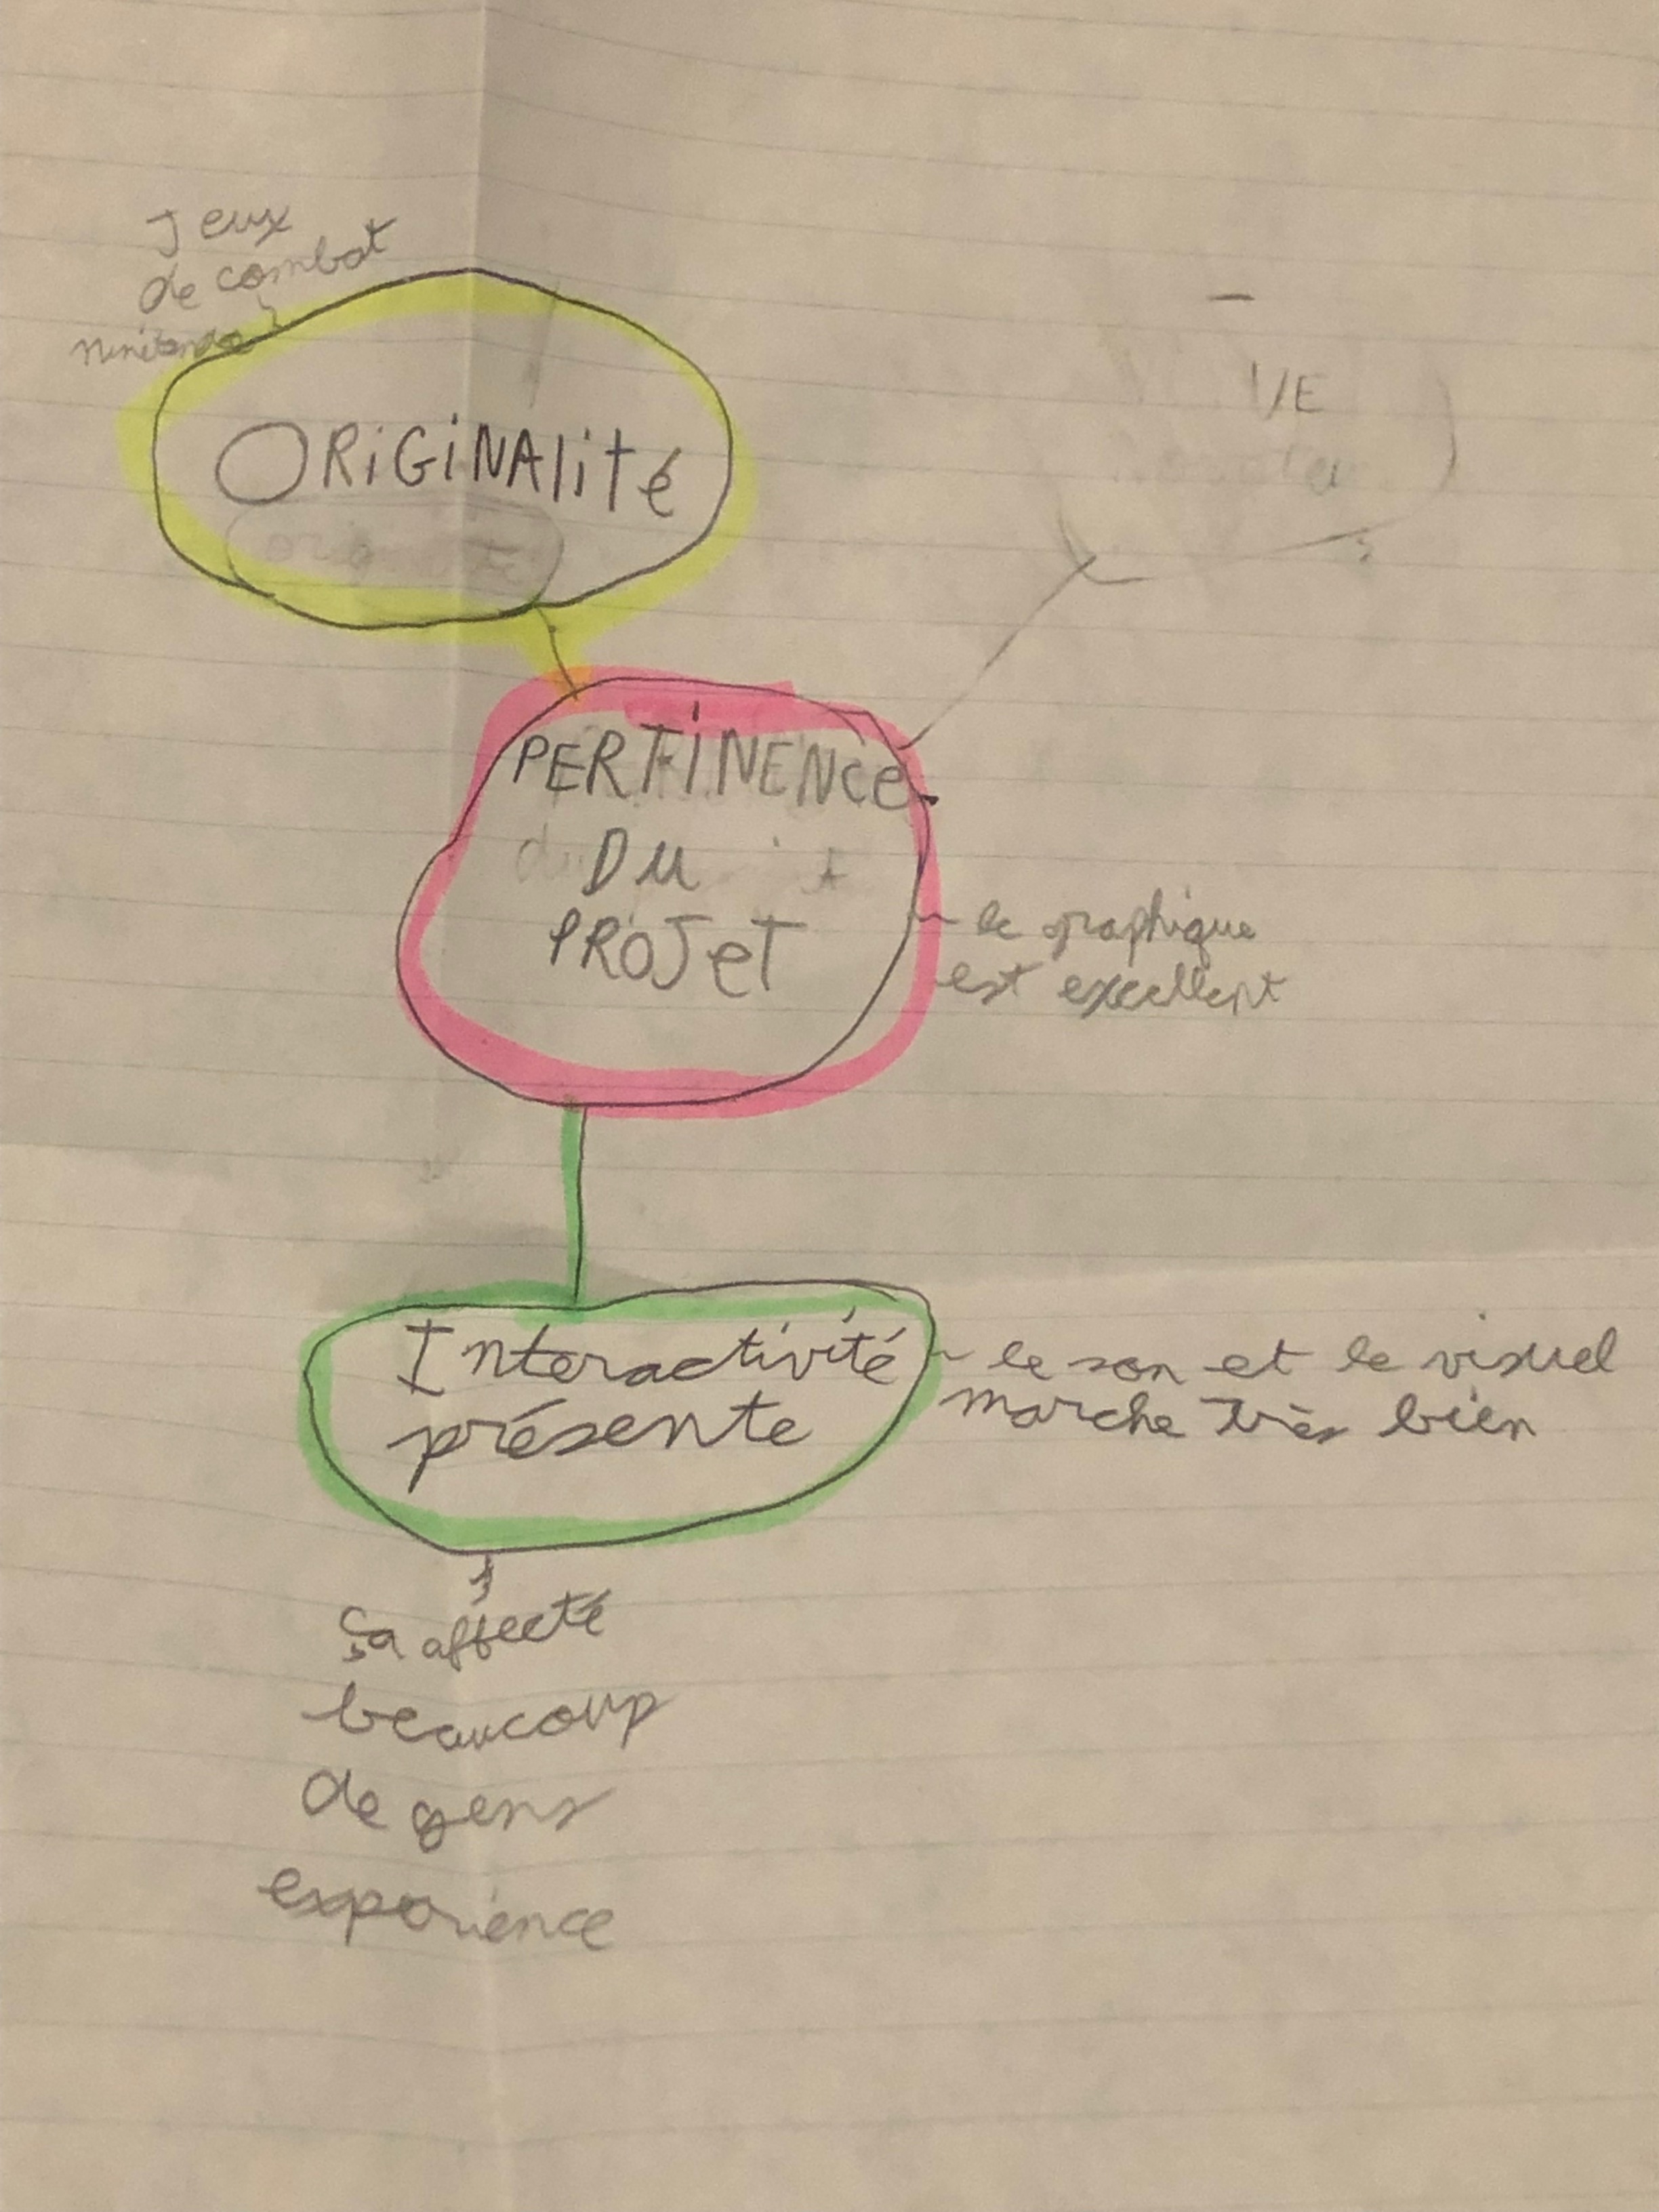 Jeux
de combat
ORiGiNAlité
VE
PERTiNENce
DU
PROJeT
le graphique
est excellent
Interactivité
présente
le son et le visuel
marche très bien
Ça affecté
beaucoup
de gens
experience